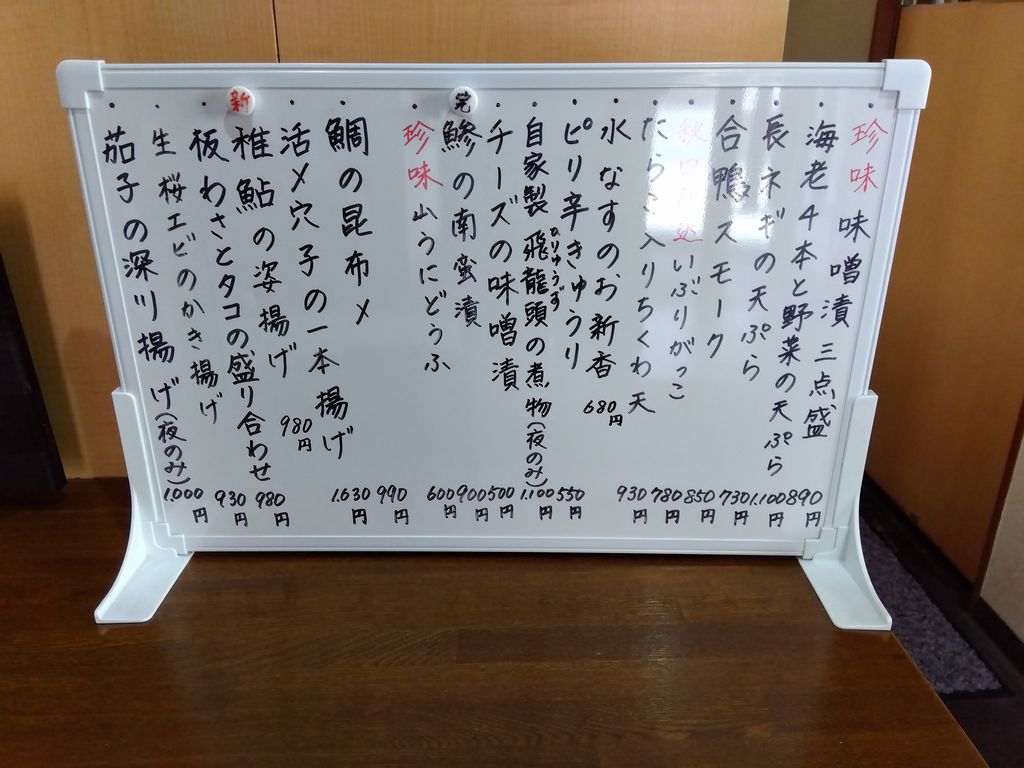 珍味 味噌漬三点盛 890円
・海老4本と野菜の天ぷら 1.100円
・長ネギの天ぷら 730円
・合鴨スモーク 850円
・秋田直送いぶりがっこ 780円
・たらこ入りちくわ天 930円
・水なすのお新香 680円
・ピリ辛きゅうり 550円
・自家製飛龍頭の煮物(夜のみ) 1.100円
ひりゅうず
・チーズの味噌漬 500円
完
鯵の南蛮漬 900円
・珍味 山うにどうふ 600円
・鯛の昆布〆 990円
・活〆穴子の一本揚げ 1.630円
新
稚鮎の姿揚げ 980円
・板わさとタコの盛り合わせ 980円
・生桜エビのかき揚げ 930円
・茄子の深川揚げ(夜のみ) 1.000円